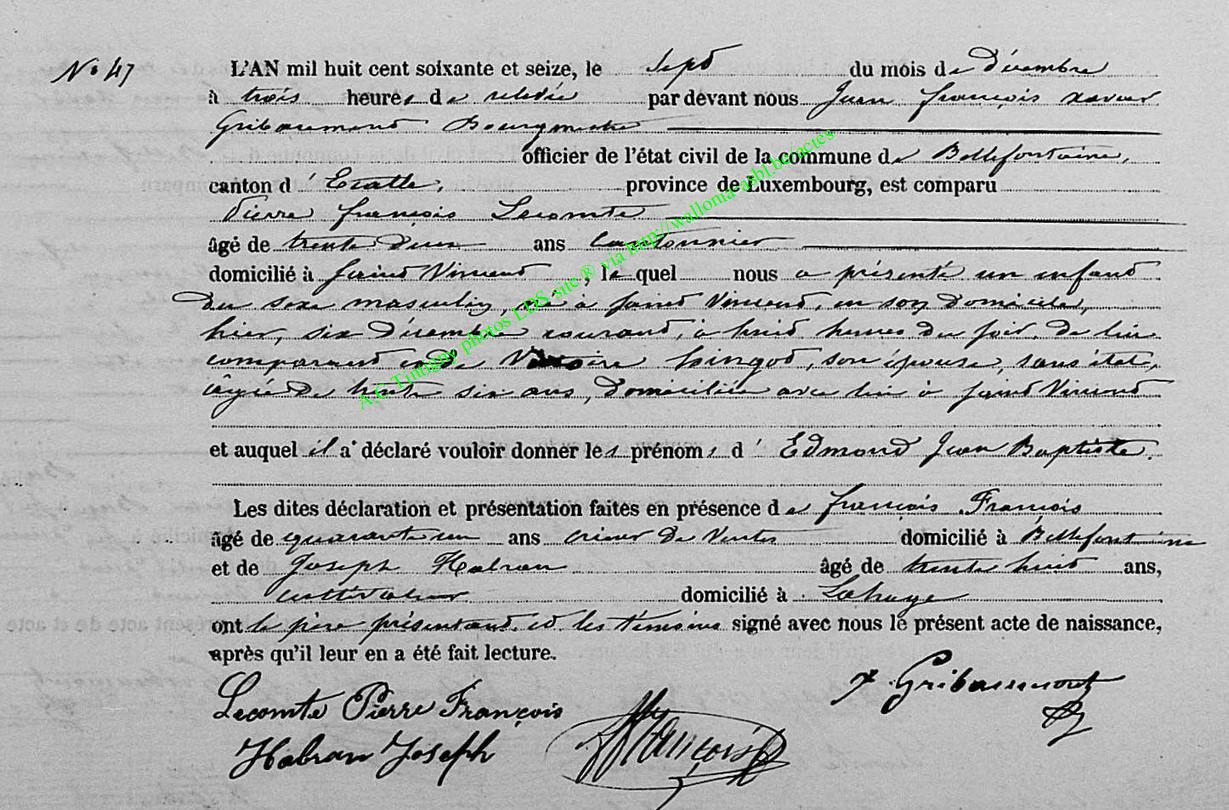 N° 47
L'AN mil huit cent soixante et seize, le sept du mois de décembre
à trois heures de relevée par devant nous Jean françois xavier
Gribaumont Bourgmestre
officier de l'état civil de la commune de Bellefontaine,
canton d'Etalle, province de Luxembourg, est comparu
Pierre françois Lecomte
âgé de trente deux ans Cantonnier
domicilié à Saint Vincent, lequel nous a présenté un enfant
du sexe masculin, né à Saint Vincent, en son domicile,
hier, six décembre courant, à huit heures du soir, de lui
comparant et de Victoire hingot, son épouse, sans état,
âgée de trente six ans, domiciliée avec lui à Saint Vincent
et auquel il a déclaré vouloir donner les prénoms d'Edmond Jean Baptiste.
Les dites déclaration et présentation faites en présence de françois François
âgé de quarante un ans crieur de Ventes domicilié à Bellefontaine
et de Joseph Habran âgé de trente huit ans,
cultivateur domicilié à Lahage
ont le père présentant et les témoins signé avec nous le présent acte de naissance,
après qu'il leur en a été fait lecture.
Lecomte Pierre François
x Gribaumont
Habran Joseph
François
A.C Tintigny photos LDS site ® via http://wallonia-asbl.be/actes